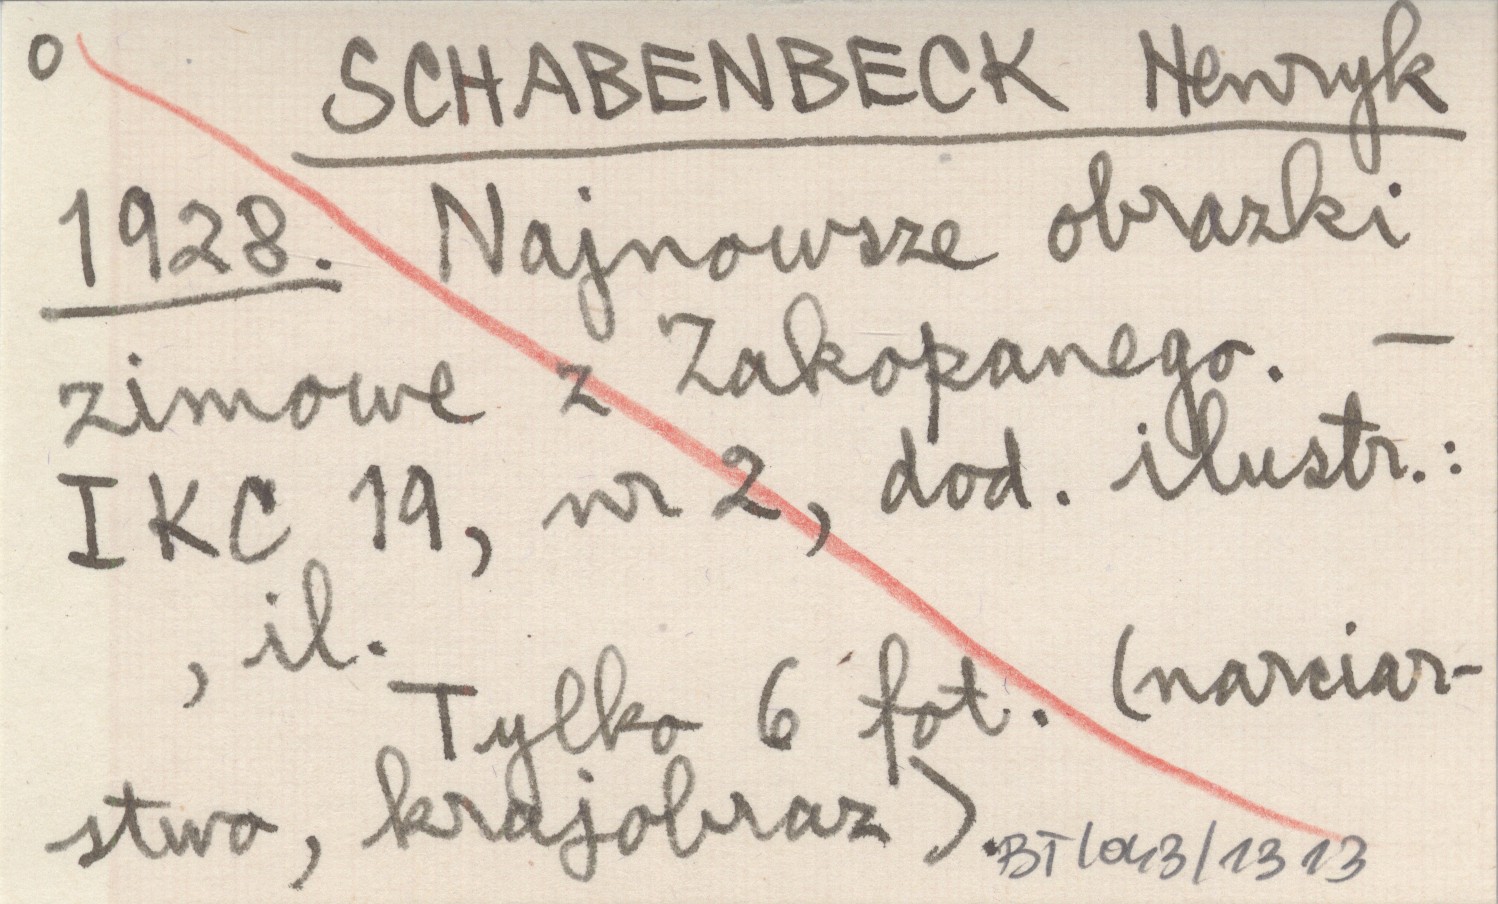 o SCHABENBECK Henryk
1928. Najnowsze obrazki
zimowe z Zakopanego. —
IKC 19, nr 2, dod. ilustr.:
, il.
Tylko 6 fot. (narciar-
stwo, krajobraz).
BT/043/1313